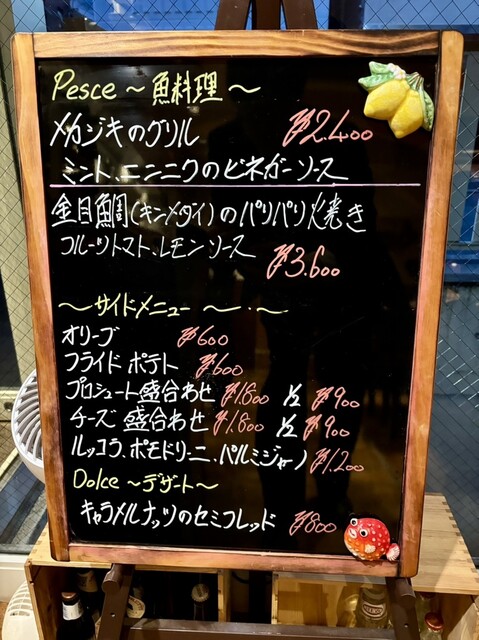 Pesce ～魚料理～
メカジキのグリル ¥2.400
ミント、ニンニクのビネガーソース
金目鯛(キンメダイ)のパリパリ焼き
フルーツトマト、レモンソース
¥3.600
～サイドメニュー～・～
オリーブ ¥600
フライドポテト ¥600
プロシュート盛合わせ ¥1.800 ½ ¥900
チーズ 盛合わせ ¥1.800 ½ ¥900
ルッコラ、ポモドリーニ、パルミジャーノ ¥1.200
Dolce ～デザート～
キャラメルナッツのセミフレッド ¥800